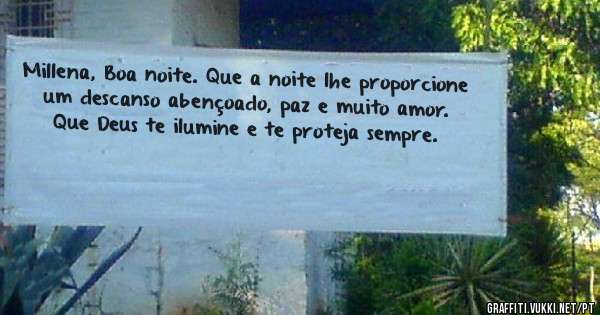 Millena, Boa noite. Que a noite lhe proporcione
um descanso abençoado, paz e muito amor.
Que Deus te ilumine e te proteja sempre.
GRAFFITI.VUKKI.NET/PT